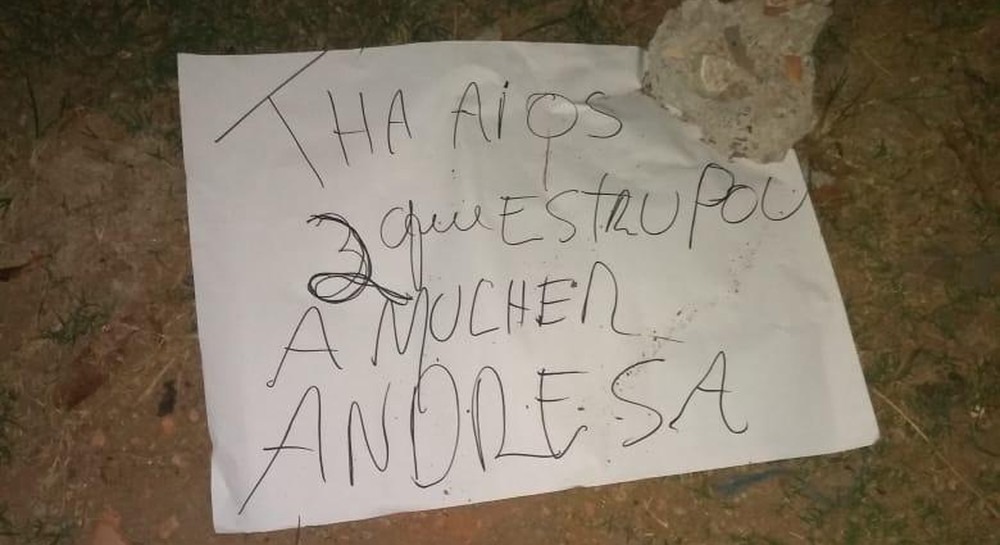 THA AI OS
2 que ESTRUPOU
A MUCHER
ANDRESA